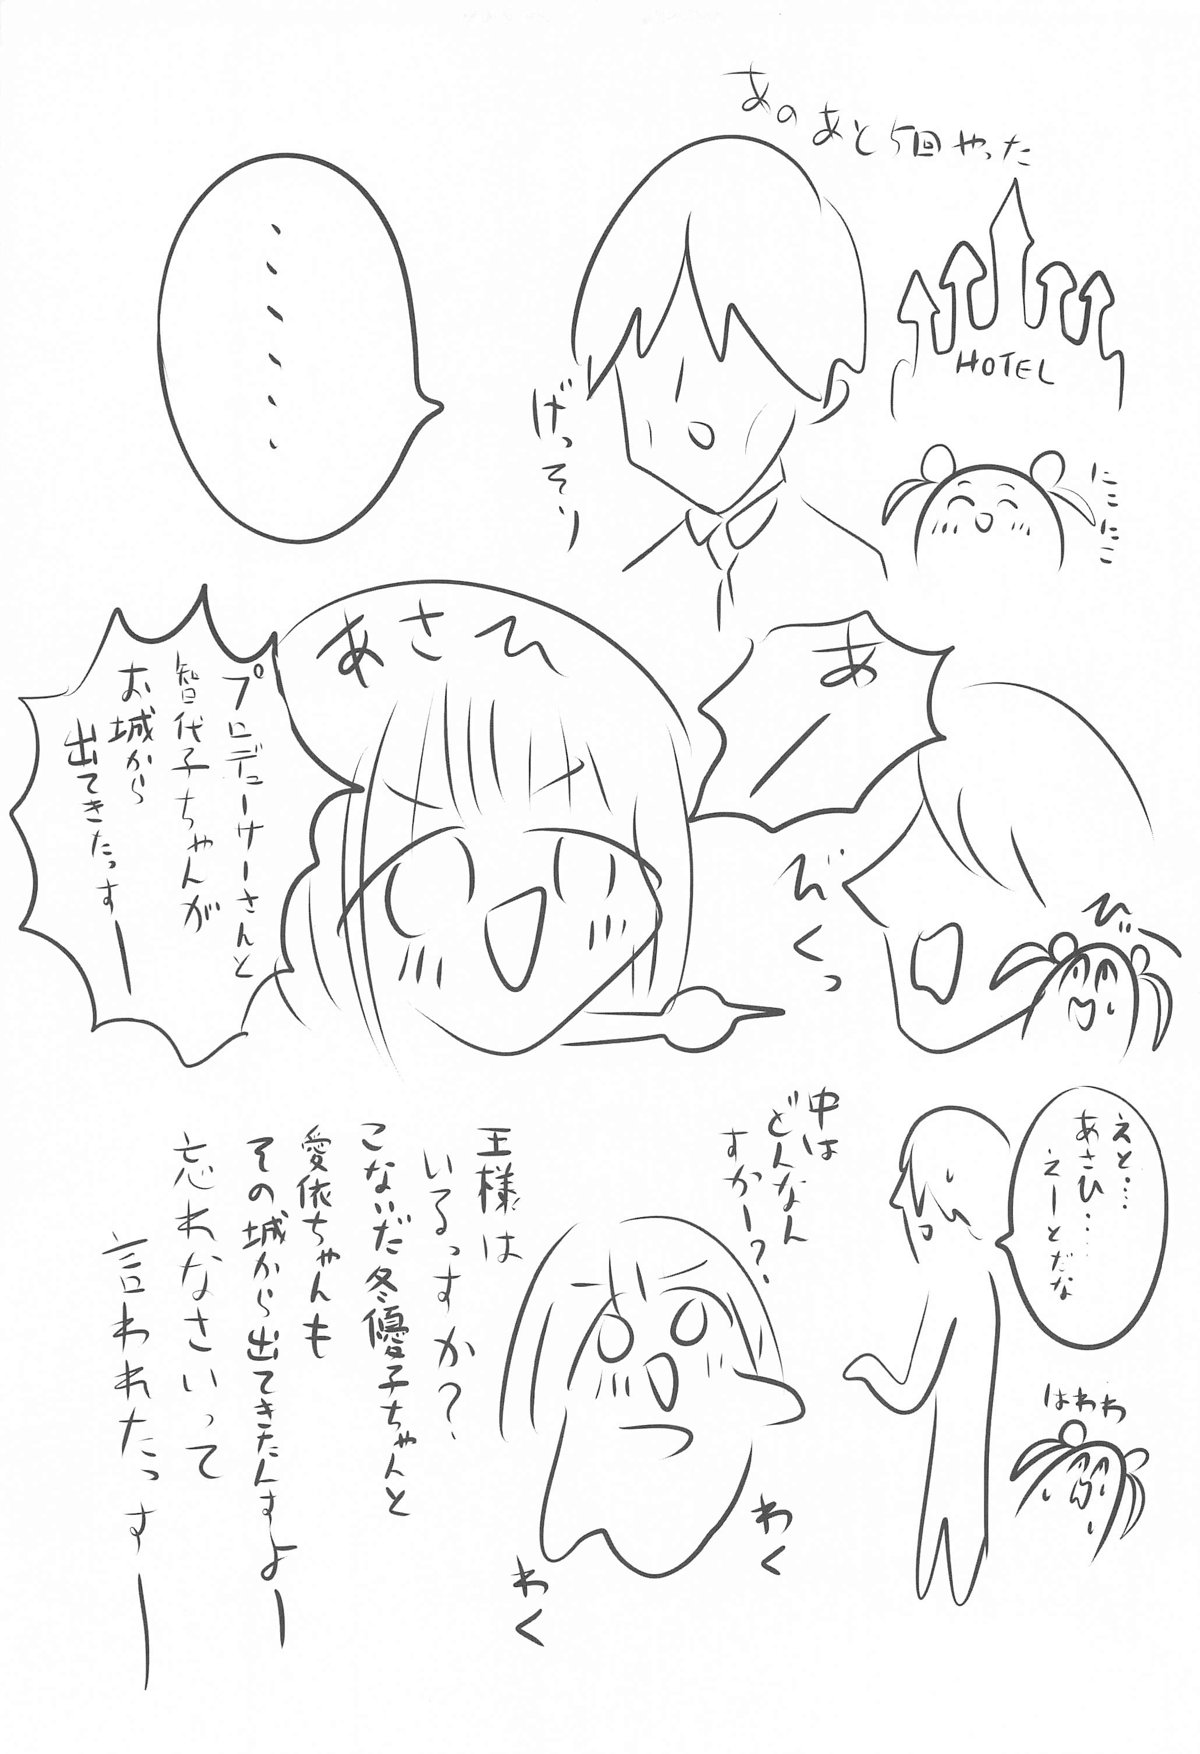 あのあと5回やった
HOTEL
にこにこ
げっそり
・・・・・・
あー
びくっ
びくっ
あさひ
プロデューサーさんと
智代子ちゃんが
お城から
出てきたっすー
えと……
あさひ……
えーとだな
はわわ
中は
どんなん
すかー?
わく
わく
王様は
いるっすか?
こないだ冬優子ちゃんと
愛依ちゃんも
その城から出てきたんすよー
忘れなさいって
言われたっすー